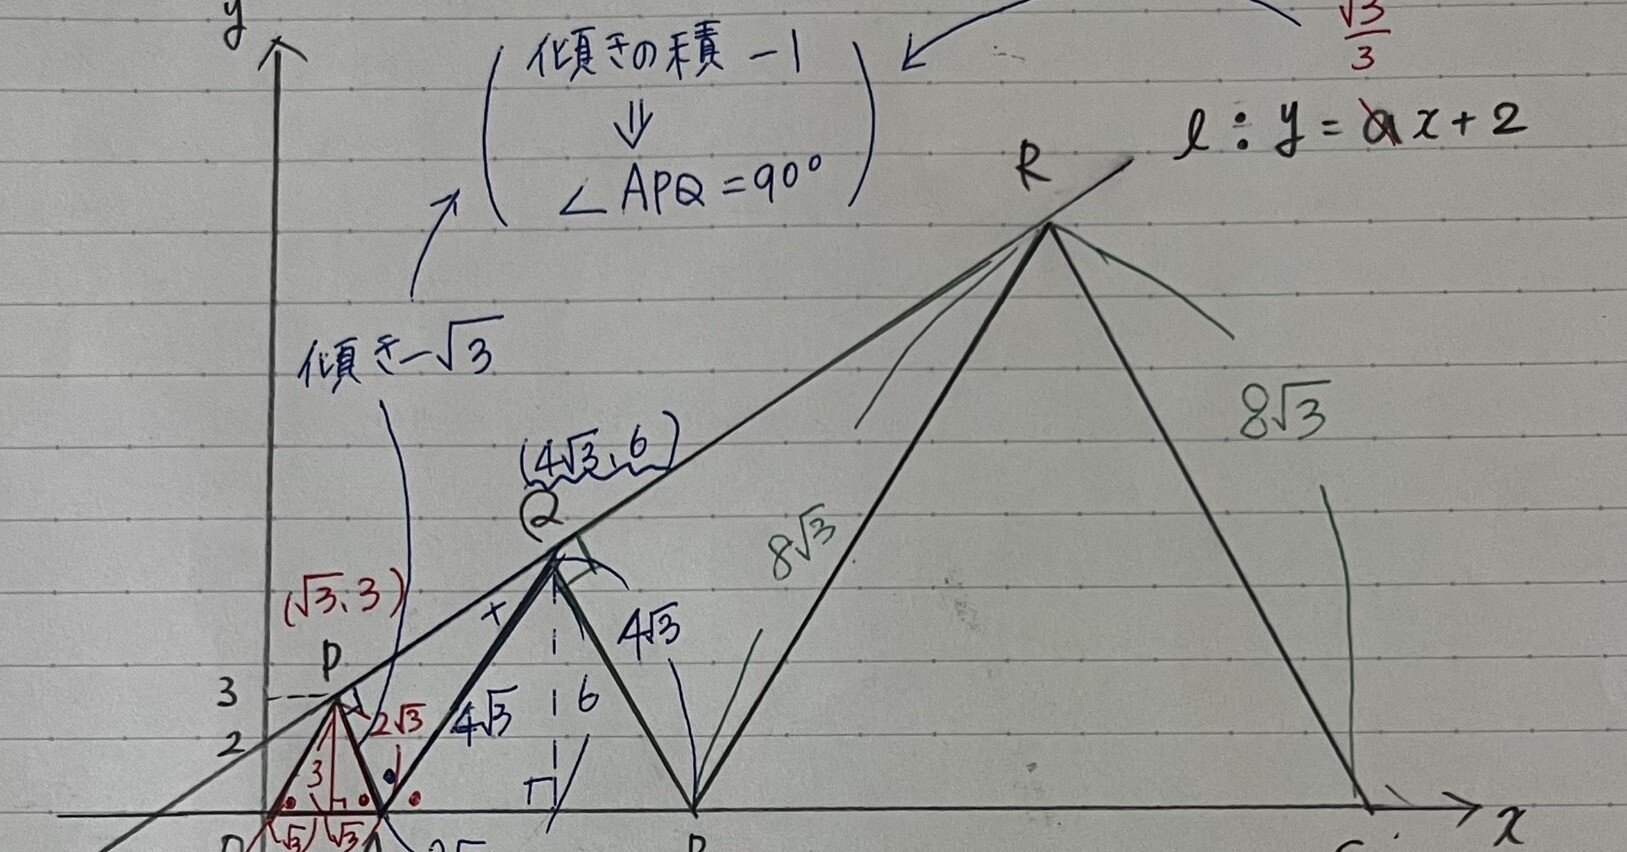 y
傾きの積 -1
⇓
∠APQ=90°
√3/3
l : y = ax+2
R
傾き-√3
(4√3, 6)
Q
8√3
8√3
(√3, 3)
P
3
2√3
4√3
4√3
6
2
3
x
√3
√3